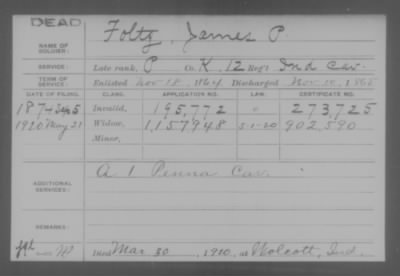 DEAD
NAME OF SOLDIER: Foltz, James P.
SERVICE: Late rank, P Co. K, 12 Reg't Ind Cav.
TERM OF SERVICE: Enlisted Nov 18, 1864 Discharged Nov 10, 1865
DATE OF FILING. CLASS. APPLICATION NO. LAW. CERTIFICATE NO.
1874 Invalid, 195,772 " 273,725
1920 May 21 Widow, 1,157,948 5-1-20 902,590
Minor,
ADDITIONAL SERVICES: A 1 Penna Cav.
REMARKS:
Died Mar 30, 1920, at Wolcott, Ind.